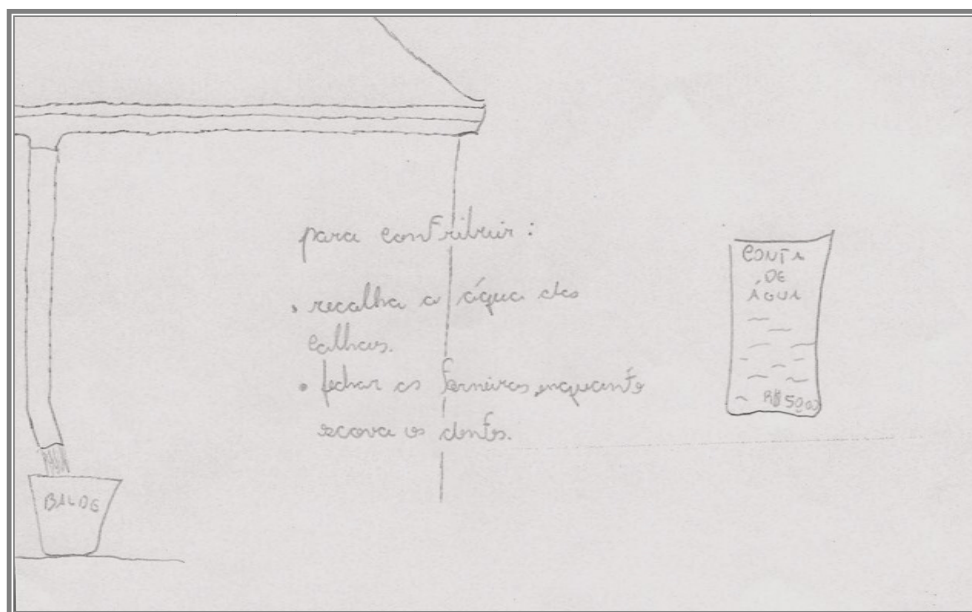 para contribuir:
• recolha a água das
calhas.
• fechar as torneiras, enquanto
escova os dentes.
BALDE
CONTA
DE
ÁGUA
R$ 50,00